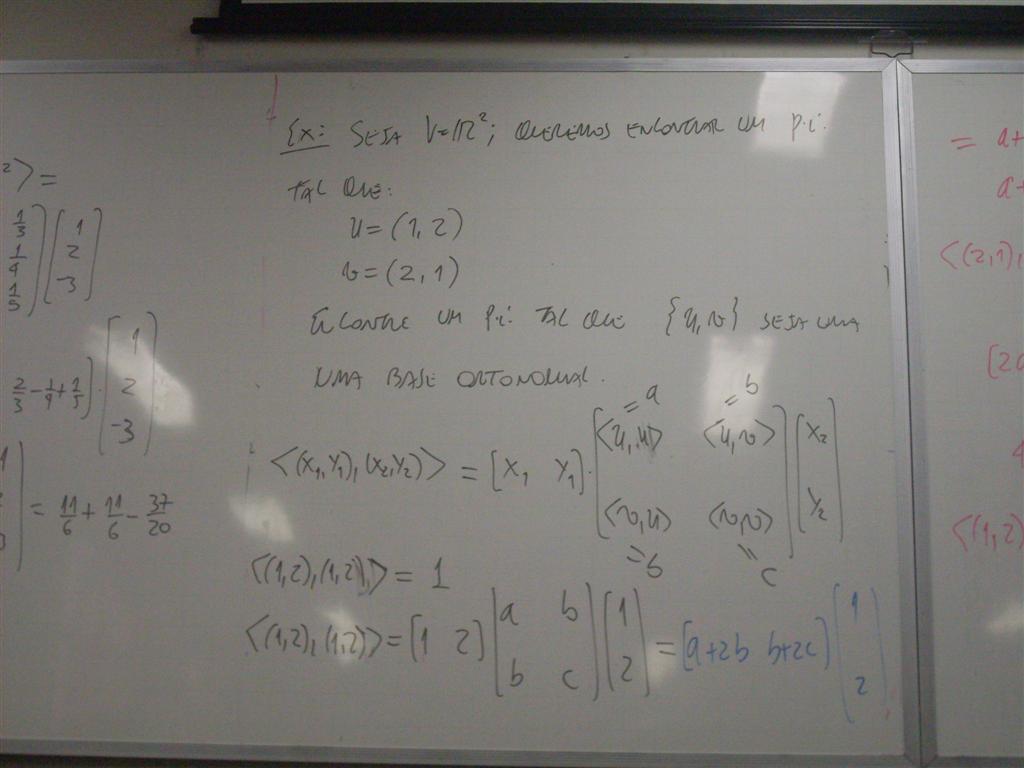 ²⟩=
1/3
1/4
1/5
1
2
-3
2/3 - 1/4 + 1/5] · [1
2
-3]
= 11/6 + 11/6 - 37/20
Ex: SEJA V=IR²; QUEREMOS ENCONTRAR UM P.I.
TAL QUE:
u = (1, 2)
v = (2, 1)
ENCONTRE UM P.I. TAL QUE {u, v} SEJA UMA
UMA BASE ORTONORMAL.
=a =b
⟨(x₁,y₁),(x₂,y₂)⟩ = [x₁ y₁] · [⟨u,u⟩ ⟨u,v⟩] [x₂
⟨v,u⟩ ⟨v,v⟩] y₂]
=b =c
⟨(1,2),(1,2)⟩ = 1
⟨(1,2),(1,2)⟩ = [1 2] [a b] [1] = [a+2b b+2c] [1
b c] [2] 2]
= a+
a+
⟨(2,1),
[2a
4
⟨(1,2)